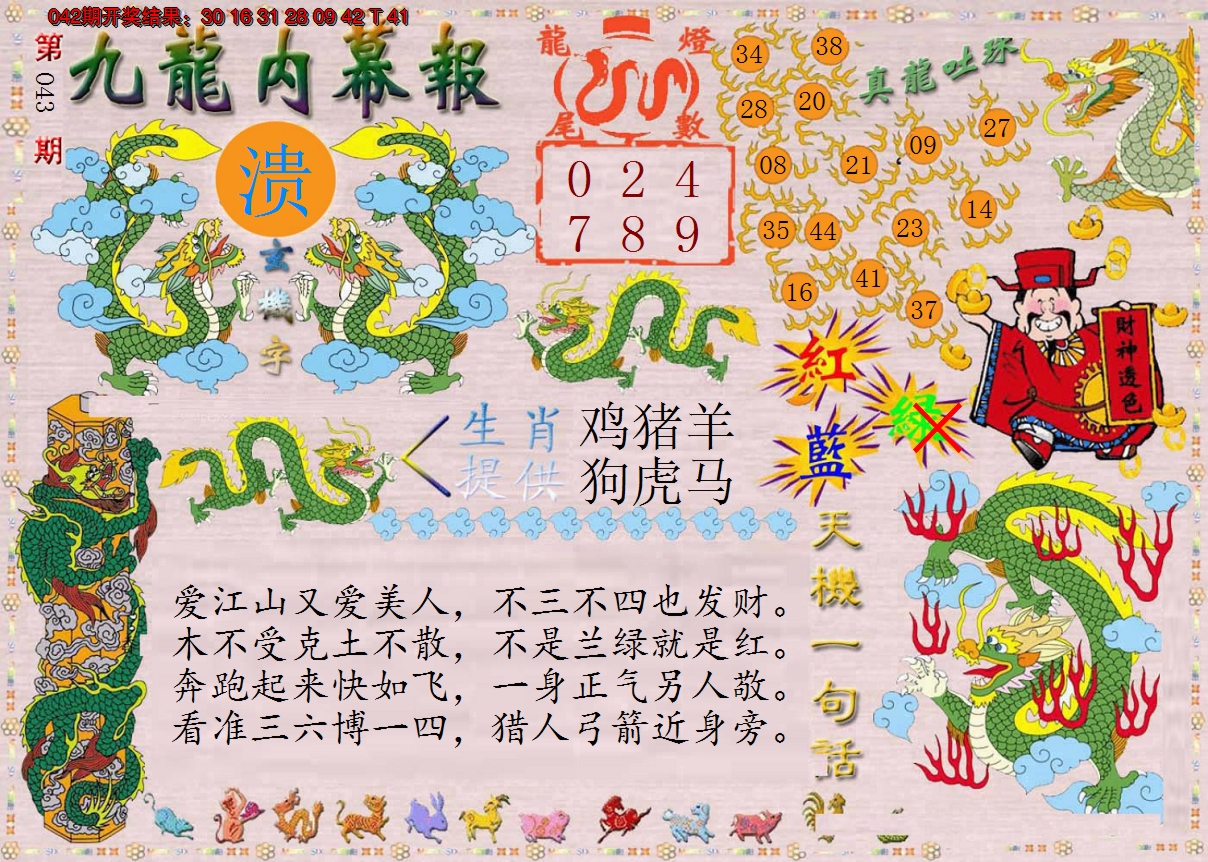 042期开奖结果：30 16 31 28 09 42 T 41
第043期
九龍内幕報
溃
玄機字
龍燈
尾數
0 2 4
7 8 9
真龍吐珠
34 38
28 20
08 21 09 27
35 44 23 14
16 41 37
財神透色
紅
綠
藍
生肖 鸡猪羊
提供 狗虎马
天機一句話
爱江山又爱美人，不三不四也发财。
木不受克土不散，不是兰绿就是红。
奔跑起来快如飞，一身正气另人敬。
看准三六博一四，猎人弓箭近身旁。